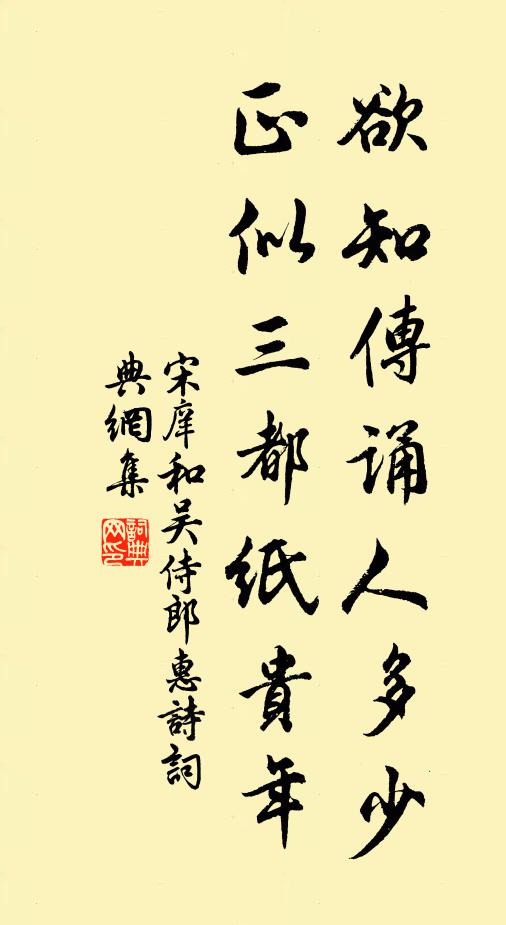 欲知傳誦人多少
正似三都紙貴年
宋庠和吴侍郎惠詩詞
典網集
詞典網印